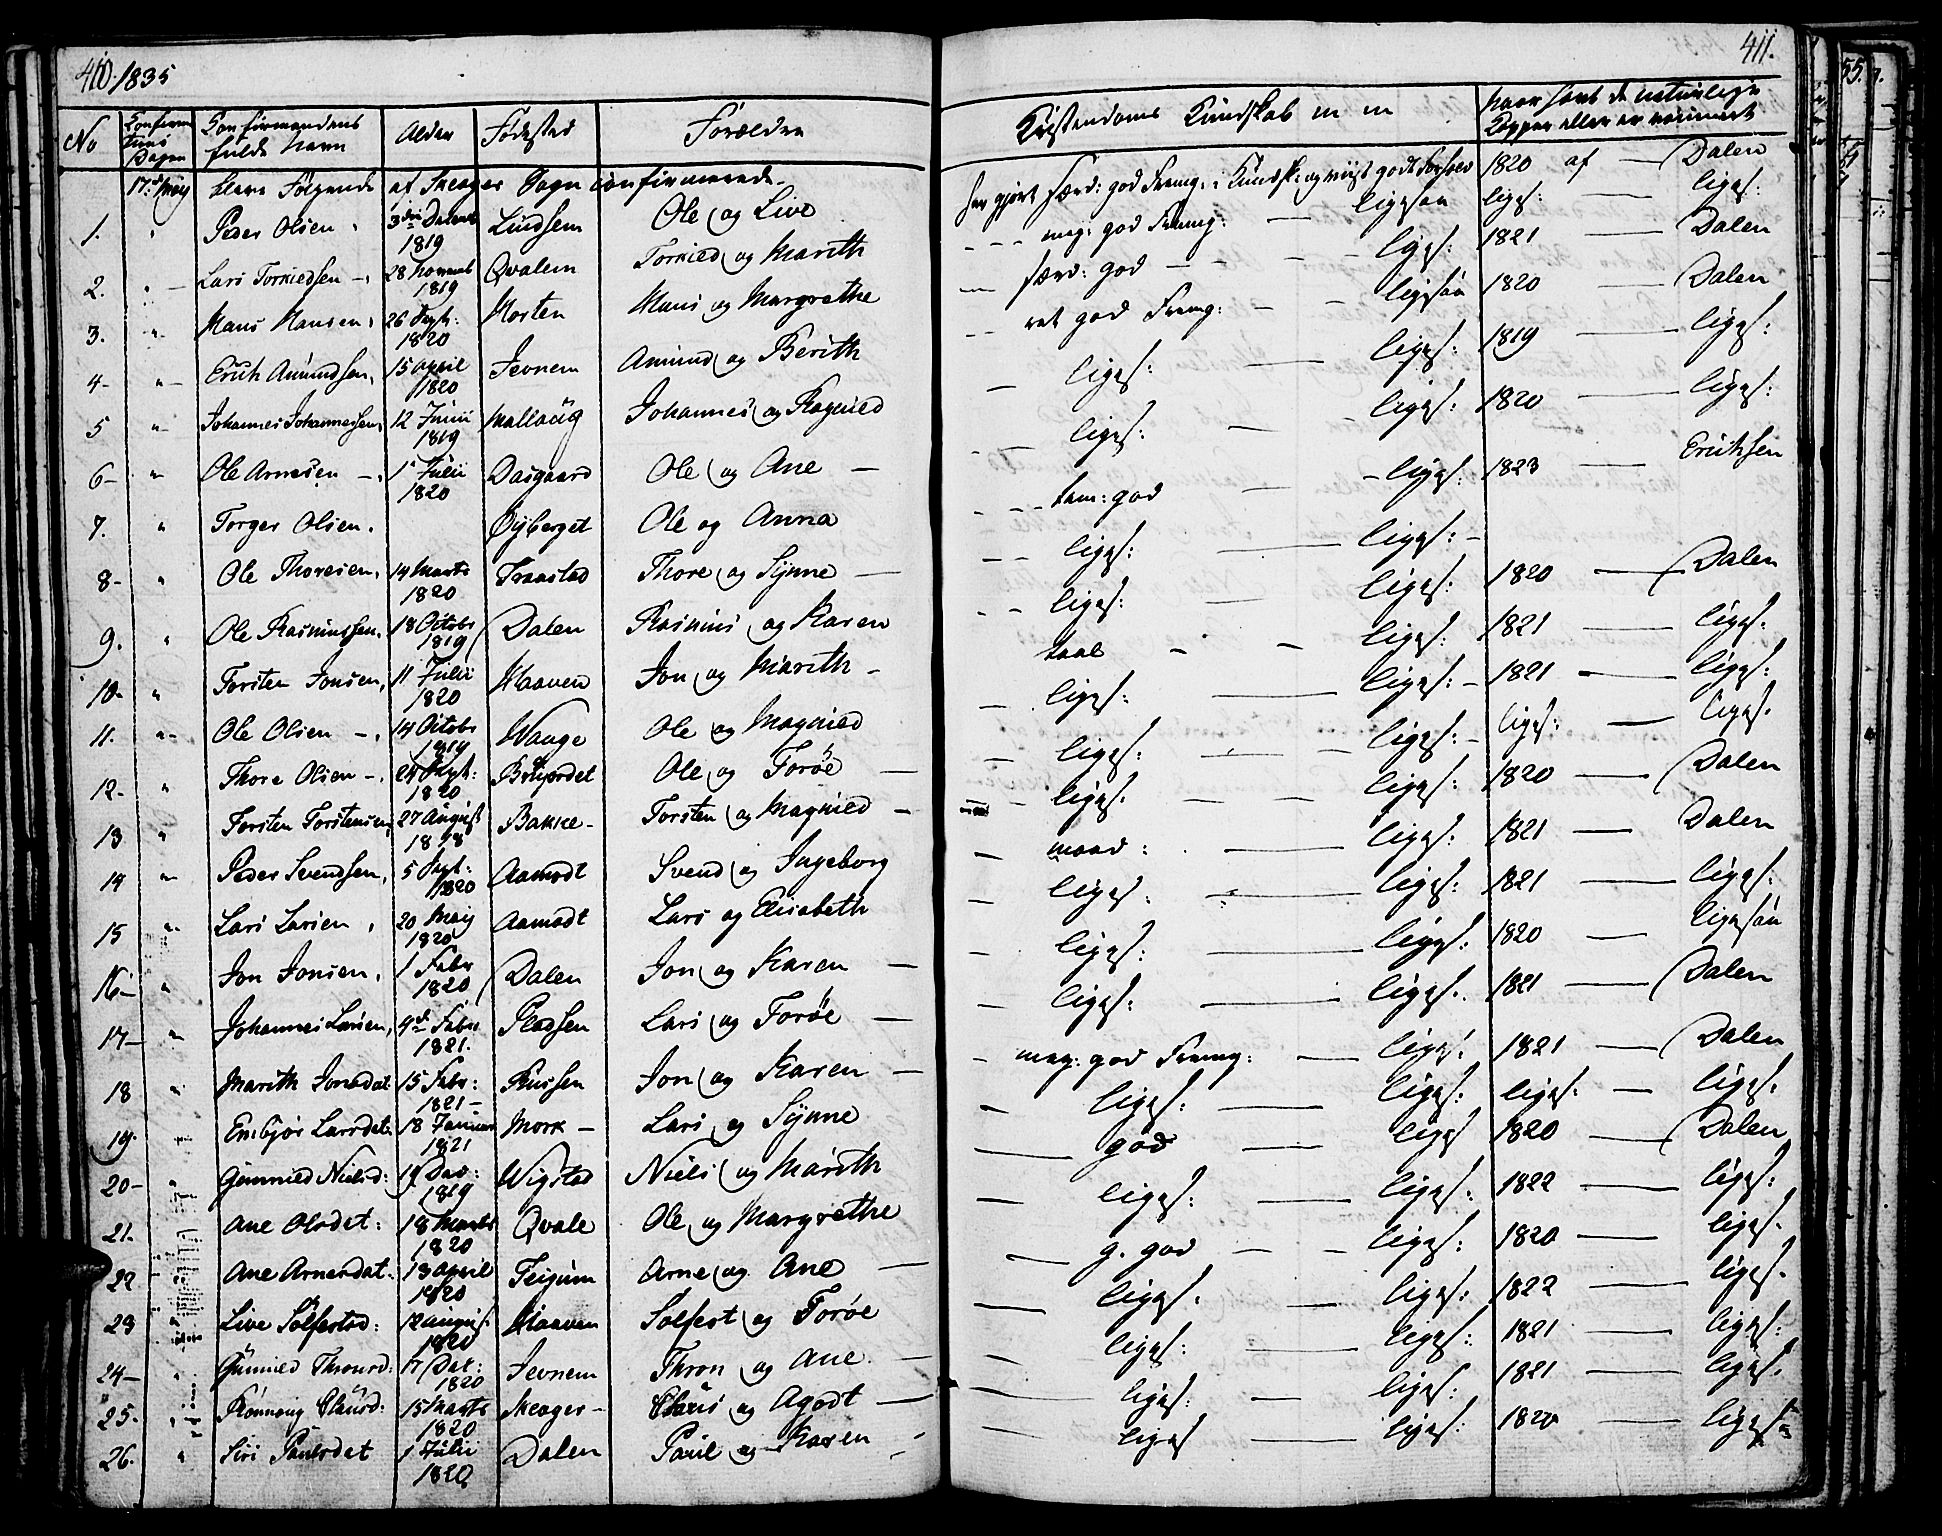 410. 1835
No Confirma tions Dagen Confirmandens fulde Navn Alder Fødested Forældre
17de May bleve følgende af Skeager Sogn confirmerede
1. Peder Olsen 3die Decemb 1819 Lundsem Ole og Live
2. Lars Torkiedsen 28 Novemb 1819 Qvalem Torkied og Marith
3. Hans Hansen 26 Sept: 1820 Horten Hans og Margrethe
4 Erich Amundsen 15 April 1820 Jevnem Amund og Berith
5 Johannes Johannessen 12 Junii 1819 Johannes og Ragnild
6 Ole Arnesen 1 Julii 1820 Dasgaard Ole og Ane
7. Torger Olsen Øyberget Ole og Anna
8 Ole Thoresen 14 Marts 1820 Fraastad Thore og Synne
9. Ole Rasmussen 18 Octobr 1819 Dalen Rasmus og Karen
10 Torsten Jonsen 11 Julii 1820 Haaven Jon og Marith
11. Ole Olsen 14 Octobr 1819 Wange Ole og Magnild
12. Thore Olsen 24 Sept: 1820 Ole og Torøe
13 Torsten Torstensen 27 August 1818 Bakke Torsten og Magnild
14 Peder Svendsen 5 Sept: 1820 Aamodt Svend og Ingeborg
15 Lars Larsen 20 May 1820 Aamodt Lars og Elisabeth
16 Jon Jonsen 1 Febr 1820 Dalen Jon og Karen
17 Johannes Larsen 4de Febr 1821. Pladsen Lars og Torøe
18 Marith Jonsdat 15 Febr: 1821 Russen Jon og Karen
19. Embjør Larsdat 18 Januar 1821 Mork Lars og Synne
20 Gunnild Nielsd: Dec: 1819 Wigstad Niels og Marith
21. Ane Olsdat: 18 Marts 1820 Qvale Ole og Margrethe
22 Ane Arnesdat: 13 April 1820 Teigum Arne og Ane
23 Live Solfestsd: 12 August 1820 Haaven Solfest og Torøe
24 Gunnild Thronsd: 17 Dec: 1820 Jevnem Thron og Ane
25. Rønnoug Clausd: 15 Marts 1820 Skeager Claus og Agodt
26. Siri Paulsdat 1 Julii 1820 Dalen Paul og Karen
411.
Kristendoms Kundskab m m naar havt de naturlige Kopper eller er vaccineret
har gjort særd: god Fremg: i Kundsk: og viist godt Forhold 1820 af Dalen
meg: god Fremg: ligesaa liges: liges:
særd: god liges: 1821 Dalen
ret god Fremg: ligesaa 1820 Dalen
liges: liges: 1819 liges:
liges: liges: 1820 liges:
tem: god liges: 1823 Erichsen
liges: liges:
liges: liges: 1820 Dalen
taal liges: 1821 liges.
liges: liges: 1821 liges:
liges: liges: liges: liges.
liges. liges: 1820 Dalen
maad: liges: 1821 Dalen
liges. liges: 1821 liges.
liges: liges: 1820 ligesaa
liges: liges. 1821 Dalen
meg: god Fremg: liges: 1821 Dalen
liges: liges: liges: liges.
god liges 1820 Dalen
liges: liges: 1822 liges:
g. god liges: 1820 liges.
liges. liges: 1822 liges.
liges: liges: 1821 liges:
liges: liges: 1821 liges.
liges liges: 1820 liges:
55.